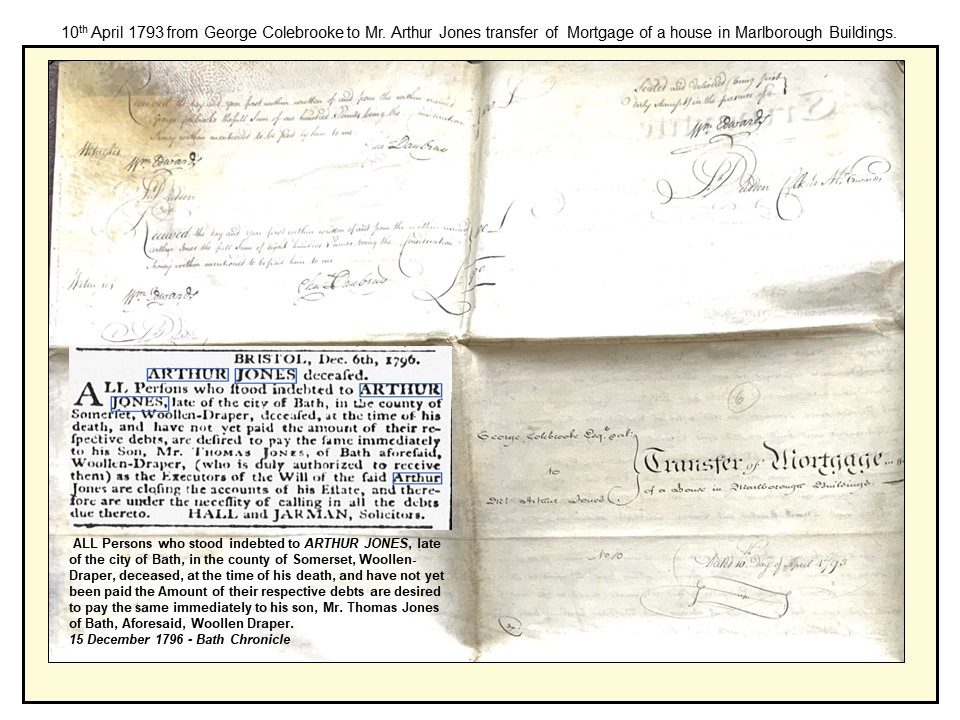 10th April 1793 from George Colebrooke to Mr. Arthur Jones transfer of Mortgage of a house in Marlborough Buildings.
Received the day and year first within written of and from the within named
George Colebrooke the full Sum of one hundred Pounds being the Consideration
Money within mentioned to be paid by him to me
Witness
Wm Edwards
Received the day and year first within written of and from the within named
Arthur Jones the full Sum of eight hundred Pounds being the Consideration
Money within mentioned to be paid him to me
Witness
Wm Edwards
Sealed and delivered (being first
duly stampt) in the presence of
Wm Edwards
BRISTOL, Dec. 6th, 1796.
ARTHUR JONES deceased.
ALL Persons who stood indebted to ARTHUR
JONES, late of the city of Bath, in the county of
Somerset, Woollen-Draper, deceased, at the time of his
death, and have not yet paid the amount of their re-
spective debts, are desired to pay the same immediately
to his Son, Mr. THOMAS JONES, of Bath aforesaid,
Woollen-Draper, (who is duly authorized to receive
them) as the Executors of the Will of the said Arthur
Jones are closing the accounts of his Estate, and there-
fore are under the necessity of calling in all the debts
due thereto. HALL and JARMAN, Solicitors.
ALL Persons who stood indebted to ARTHUR JONES, late
of the city of Bath, in the county of Somerset, Woollen-
Draper, deceased, at the time of his death, and have not yet
been paid the Amount of their respective debts are desired
to pay the same immediately to his son, Mr. Thomas Jones
of Bath, Aforesaid, Woollen Draper.
15 December 1796 - Bath Chronicle
6
George Colebrooke Esqr
to
Mr Arthur Jones
Transfer of Mortgage
of a House in Marlborough Buildings
No 10
Dated 10th day of April 1793